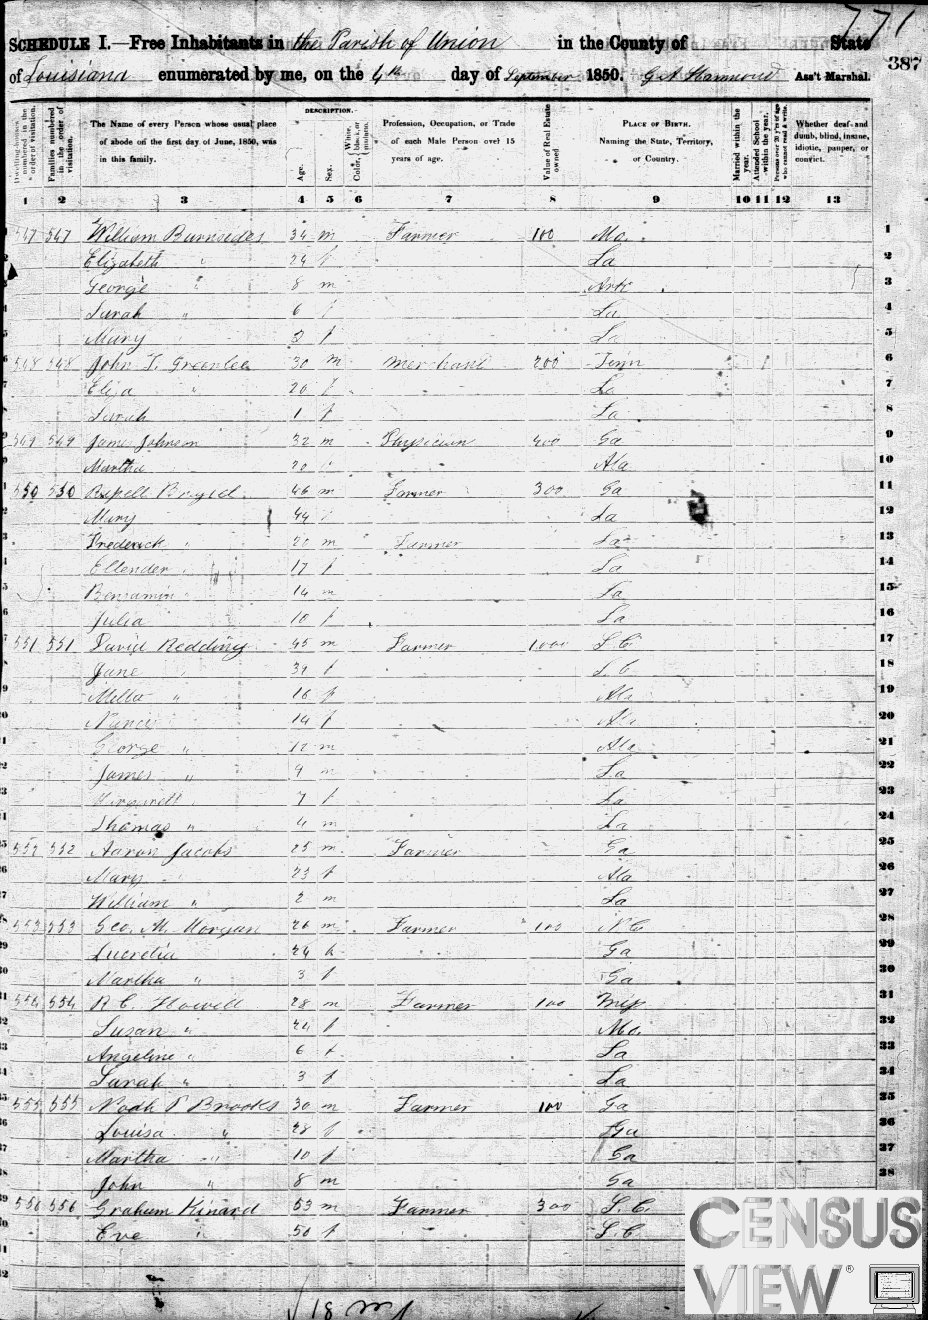 771
SCHEDULE I.—Free Inhabitants in the Parish of Union in the County of State
of Louisiana enumerated by me, on the 4th day of September 1850. Ass't Marshal.
387
Dwelling-houses numbered in the order of visitation.
Families numbered in the order of visitation.
The Name of every Person whose usual place of abode on the first day of June, 1850, was in this family.
DESCRIPTION.
Age.
Sex.
Color, White, black, or mulatto.
Profession, Occupation, or Trade of each Male Person over 15 years of age.
Value of Real Estate owned
PLACE OF BIRTH. Naming the State, Territory, or Country.
Married within the year.
Attended School within the year.
Persons over 20 y'rs of age who cannot read & write.
Whether deaf and dumb, blind, insane, idiotic, pauper, or convict.
1 2 3 4 5 6 7 8 9 10 11 12 13
547 547 William Burnsides 34 m Farmer 100 Mo. 1
Elizabeth " 24 f La 2
George " 8 m Ark 3
Sarah " 6 f La 4
Mary " 2 f La 5
548 548 John T. Greenlee 30 m Merchant 200 Tenn 6
Eliza " 20 f La 7
Sarah 1 f La 8
549 549 James Johnson 32 m Physician 400 Ga 9
Martha 20 Ala 10
550 550 46 m Farmer 300 Ga 11
Mary 44 La 12
Frederick " 20 m Farmer La 13
Ellender " 17 f La 14
Benjamin " 14 m La 15
Julia 10 f La 16
551 551 David Redding 45 m Farmer 1000 S.C. 17
Jane f S.C. 18
Milla " 16 f Ala 19
14 f Ala 20
George " 12 m Ala 21
James " 9 m La 22
Margarett 7 f La 23
Thomas " 4 m La 24
552 552 Aaron Jacobs 25 m Farmer Ga 25
Mary " 23 f Ala 26
William " 2 m La 27
553 553 Geo. M. Morgan 26 m Farmer 100 N.C. 28
Lucretia 24 Ga 29
Martha " 3 f Ga 30
554 554 R C. Howell 28 m Farmer 100 31
Susan " 24 f Mo. 32
Angeline " 6 f La 33
Sarah " 3 f La 34
555 555 Noah Brooks 30 m Farmer 100 Ga 35
Louisa " 28 f Ga 36
Martha " 10 f Ga 37
John " 8 m Ga 38
556 556 Graham Kinard 53 m Farmer 300 S.C.
Eve " 50 f S.C.
18 m
CENSUS
VIEW®